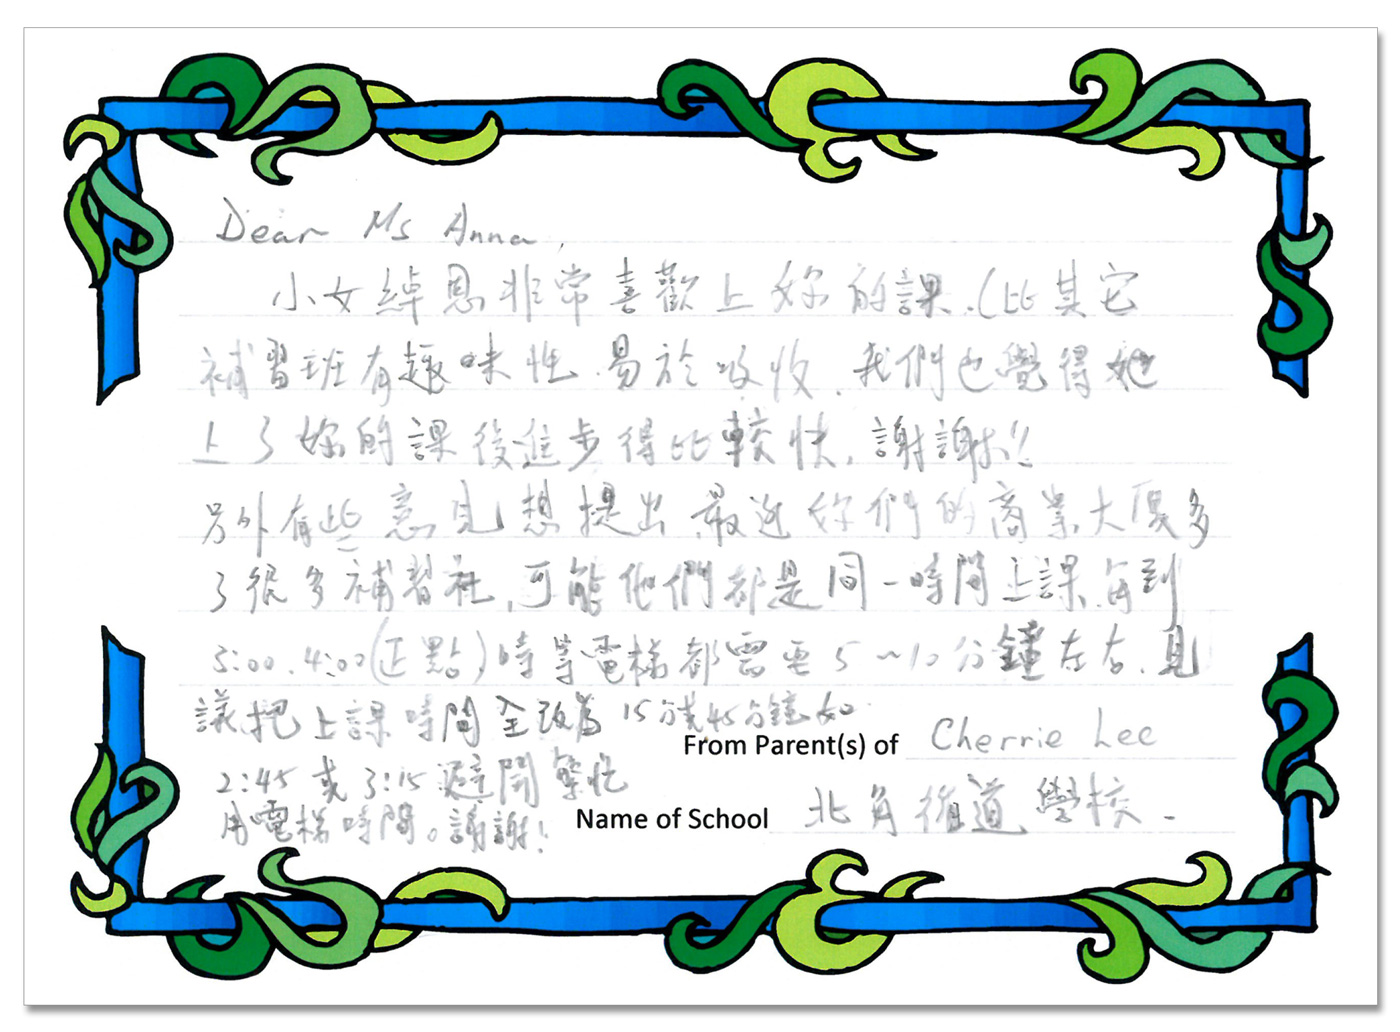 Dear Ms Anna,
小女綽恩非常喜歡上妳的課.(比其它
補習班有趣味性.易於吸收.我們也覺得她
上了妳的課後進步得比較快.謝謝!!
另外有些意見想提出.最近妳們的商業大厦多
了很多補習社,可能他們都是同一時間上課.每到
3:00.4:00(正點)時等電梯都需要5~10分鐘左右.見
議把上課時間全改為15分或45分鐘如
From Parent(s) of Cherrie Lee
2:45 或 3:15 避開繁忙
用電梯時間。謝謝!
Name of School 北角衛道學校.